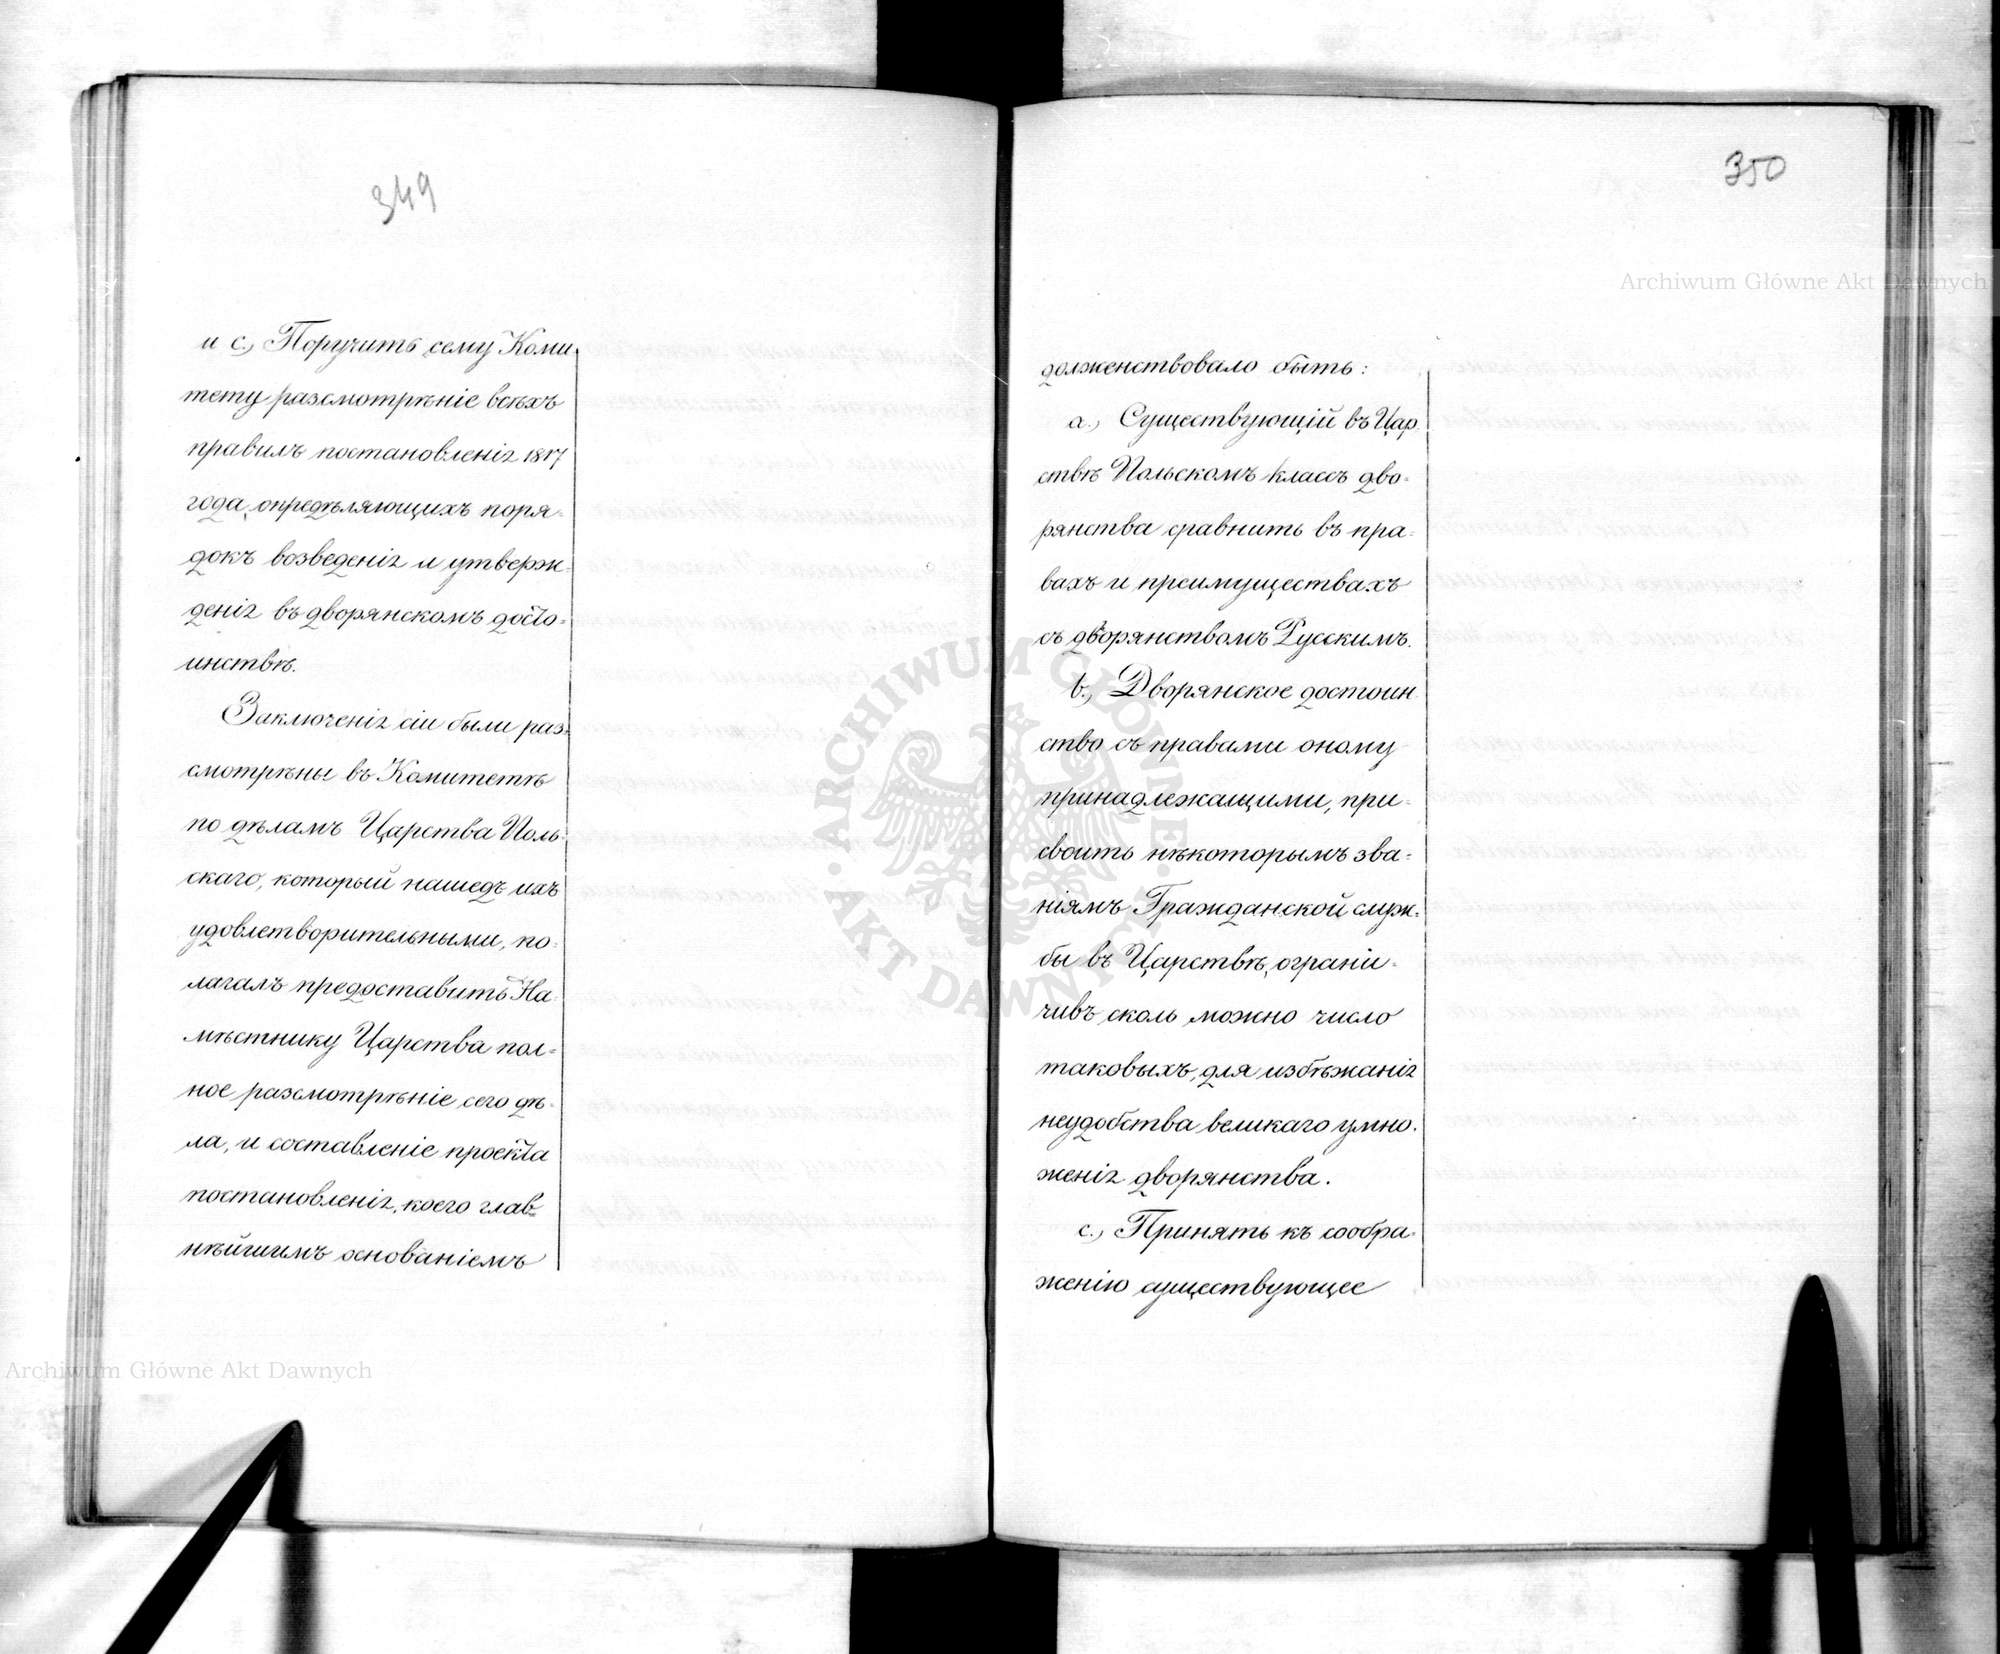 349
и с., Поручить сему Коми-
тету разсмотрѣніе всѣхъ
правилъ постановленія 1817
года, опредѣляющихъ поря-
докъ возведенія и утверж-
денія въ дворянскомъ досто-
инствѣ.
Заключенія сіи были раз-
смотрѣны въ Комитетѣ
по дѣламъ Царства Поль-
скаго, который нашедъ ихъ
удовлетворительными, по-
лагалъ предоставить На-
мѣстнику Царства пол-
ное разсмотрѣніе сего дѣ-
ла, и составленіе проекта
постановленія, коего глав-
нѣйшимъ основаніемъ
350
долженствовало быть:
a., Существующій въ Цар-
ствѣ Польскомъ классъ дво-
рянства сравнить въ пра-
вахъ и преимуществахъ
съ дворянствомъ Русскимъ.
b., Дворянское достоин-
ство съ правами оному
принадлежащими, при-
своить нѣкоторымъ зва-
ніямъ Гражданской служ-
бы въ Царствѣ, ограни-
чивъ сколь можно число
таковыхъ, для избѣжанія
неудобства великаго умно-
женія дворянства.
c., Принять къ сообра-
женію существующее
Archiwum Główne Akt Dawnych
Archiwum Główne Akt Dawnych
ARCHIWUM GŁÓWNE AKT DAWNYCH